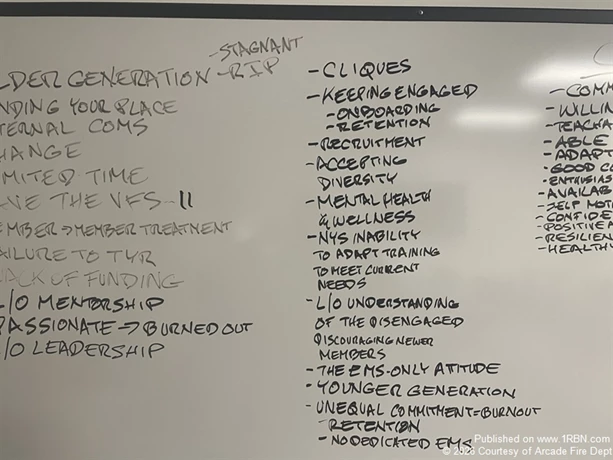 -STAGNANT
LDER GENERATION -RIP
NDING YOUR PLACE
TERNAL COMS
HANGE
IMITED TIME
VE THE VFS-11
EMBER→MEMBER TREATMENT
AILURE TO TYR
ACK OF FUNDING
L/O MENTORSHIP
PASSIONATE→BURNED OUT
L/O LEADERSHIP
-CLIQUES
-KEEPING ENGAGED
-ONBOARDING
-RETENTION
-RECRUITMENT
-ACCEPTING
DIVERSITY
-MENTAL HEALTH
& WELLNESS
-NYS INABILITY
TO ADAPT TRAINING
TO MEET CURRENT
NEEDS
-L/O UNDERSTANDING
OF THE DISENGAGED
DISCOURAGING NEWER
MEMBERS
-THE EMS-ONLY ATTITUDE
-YOUNGER GENERATION
-UNEQUAL COMMITMENT=BURNOUT
RETENTION
-NO DEDICATED EMS
-COMM
-WILLIN
-TEACHA
-ABLE
-ADAPT
-GOOD C
-ENTHUSIAS
-AVAILAB
-HELP MOT
-CONFIDE
-POSITIVE A
-RESILIEN
-HEALTHY
Published on www.1RBN.com
© 2026 Courtesy of Arcade Fire Dept